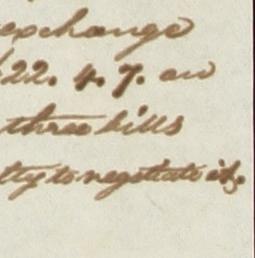 exchange
22. 4. 7. on
three bills
lty to negotiate it.